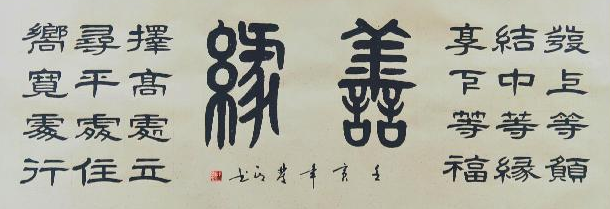 發上等願
結中等緣
享下等福
善緣
擇高處立
尋平處住
嚮寬處行